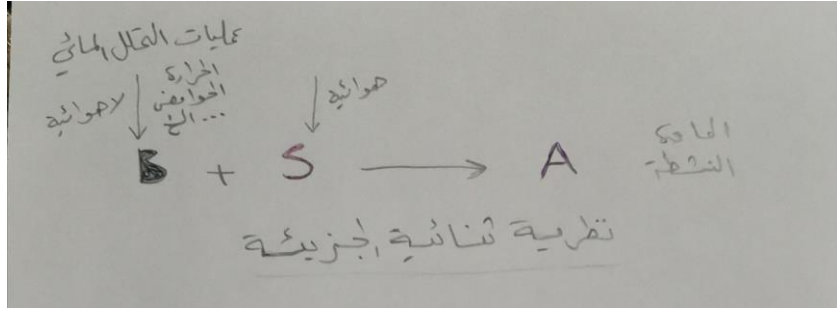 عمليات التحلل المائي
لاهوائية
الحرارة
الحوامض
...الخ
هوائية
B + S → A
المادة
النشطة
نظرية ثنائية الجزيئة